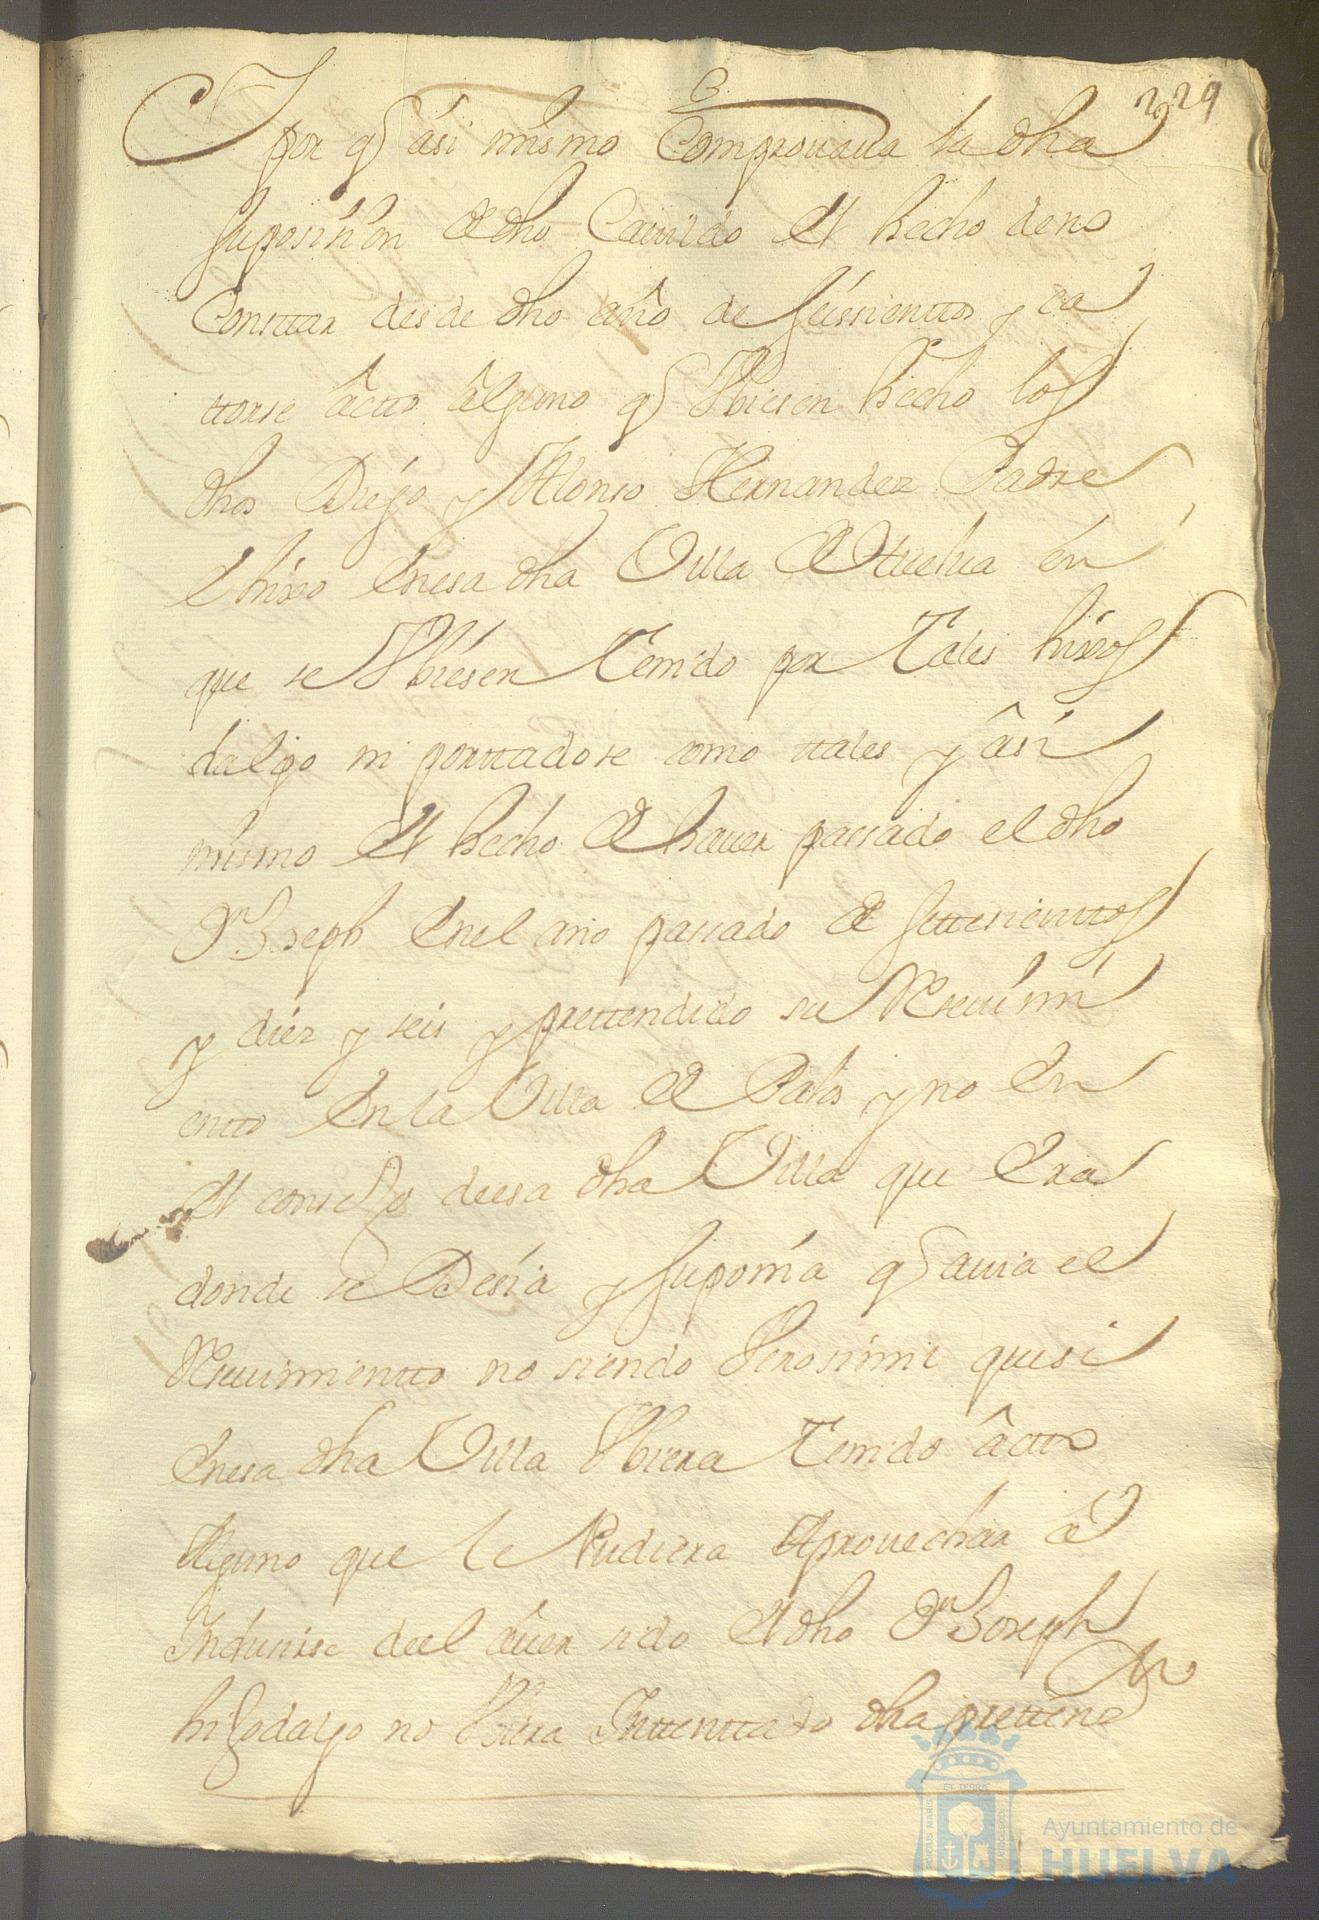 2929
Y por q asi mismo Comprouaua la dha
suposision de dho Cauildo el hecho de no
Consttar desde dho año de seissienttos y ca
ttorse actto alguno q Vbiesen hecho los
dhos Diego y Alonso Hernandez Padre
e hixo En esa dha Villa de Huelua en
que se Vbiesen Tenido por Tales hixos
dalgo ni porttadose como ttales y asi
mismo el hecho de hauer passado el dho
Dn Joseph En el año passado de settesienttos
y diez y seis y prettendido su Resiuimi
entto En la Villa de Palos y no En
el consejo de esa dha Villa que Era
donde se Desia y suponia q auia el
Resiuimientto no siendo Verosimil que si
En esa dha Villa Vbiera Tenido actto
Alguno que le Pudiera Aprouechar a
Indusirse de el auer sido el dho Dn Joseph
hijodalgo no Vbiera Inttenttado dha pretten
Ayuntamiento de
HUELVA